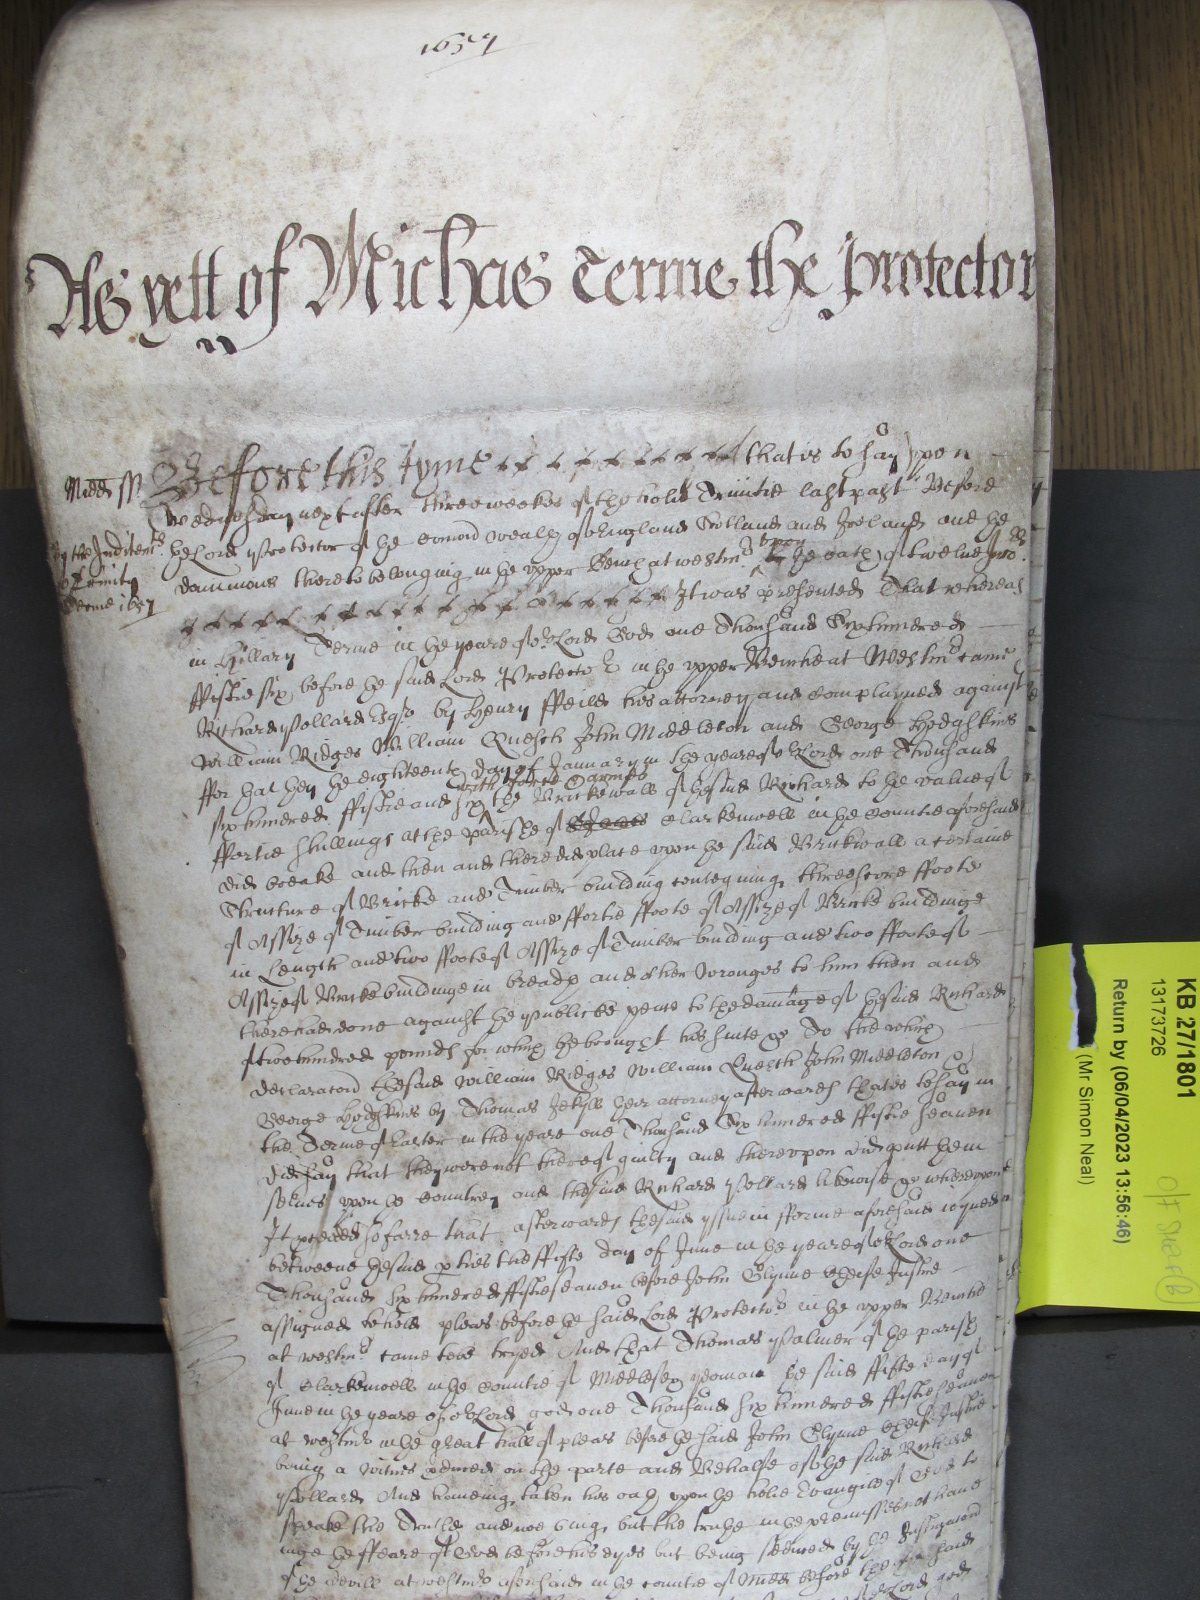 1657
As yett of Michas Terme the protector
Midd ss Before this tyme (that is to say) upon
Wednesday next after three weekes of the holie Trinitie last past Before
By the Inditemts the Lord Protector of the Comon wealth of England Scotland and Ireland and the
of Trinity dominions thereto belonging in the upper Bench at Westmr upon the oath of twelve Juro
Terme 1657 It was presented That whereas
in Hillary Terme in the yeare of or Lord God one Thousand Six hundred
ffiftie six before the said Lord Protector in the upper Benche at Westmr came
Richard Pollard Esqr by Henry ffeild his attorney and complayned against
William Ridges William Quelch John Middleton and George Hodgskins
ffor that they the eighteenth day of January in the yeare of or Lord one Thousand
with force & armes
six hundred ffiftie and six the Brickewall of the said Richard to the value of
ffortie shillings at the parishe of Clarkenwell in the Countie aforesaid
did breake and then and there did place upon the said Brickwall a certaine
Structure of Bricke and Timber building conteyning threescore ffoote
of Assize of Timber building and ffortie ffoote of Assize of Bricke buildinge
in Length and two ffoote of Assize of Timber building and two ffoote of
Assize of Bricke buildinge in breadth and other wronges to him then and
there had done against the publicke peace to the damage of the said Richard
of two hundred pounds for which he brought his suite &c To the which
declaracon the said William Ridges William Quelch John Middleton &
George Hodgskins by Thomas Jekyll their attorney afterwards that is to say in
the Terme of Easter in the yeare one Thousand Six hundred ffiftie seaven
did say that they were not thereof guilty and thereupon did putt them
selves upon the Countrey and the said Richard Pollard likewise &c whereupon
It proceeded so farre that afterwards the said yssue in fforme aforesaid ioyned
betweene the said pties the ffifte day of June in the yeare of or Lord one
Thousand six hundred ffiftie seaven before John Glynne Cheife Justice
assigned to hold pleas before the said Lord Protector in the upper Benche
at Westmr came to be tryed And that Thomas Palmer of the parish
of Clarkenwell in the Countie of Middlesex yeoman the said ffifte day of
June in the yeare of or Lord god one Thousand six hundred ffiftie seaven
at Westmr in the great hall of pleas before the said John Glynne Cheife Justice
being a witnes pduced on the parte and Behalfe of the said Richard
Pollard And haveing taken his oath upon the holie Evangile of God to
speake the Truth and noe thing but the truthe in the premisses not have
inge the ffeare of God before his eyes but being seduced by the Instigacon
of the devill at Westmr aforesaid in the Countie of Midd before the
KB 27/1801
13173726
Return by (06/04/2023 13:56:46)
(Mr Simon Neal)